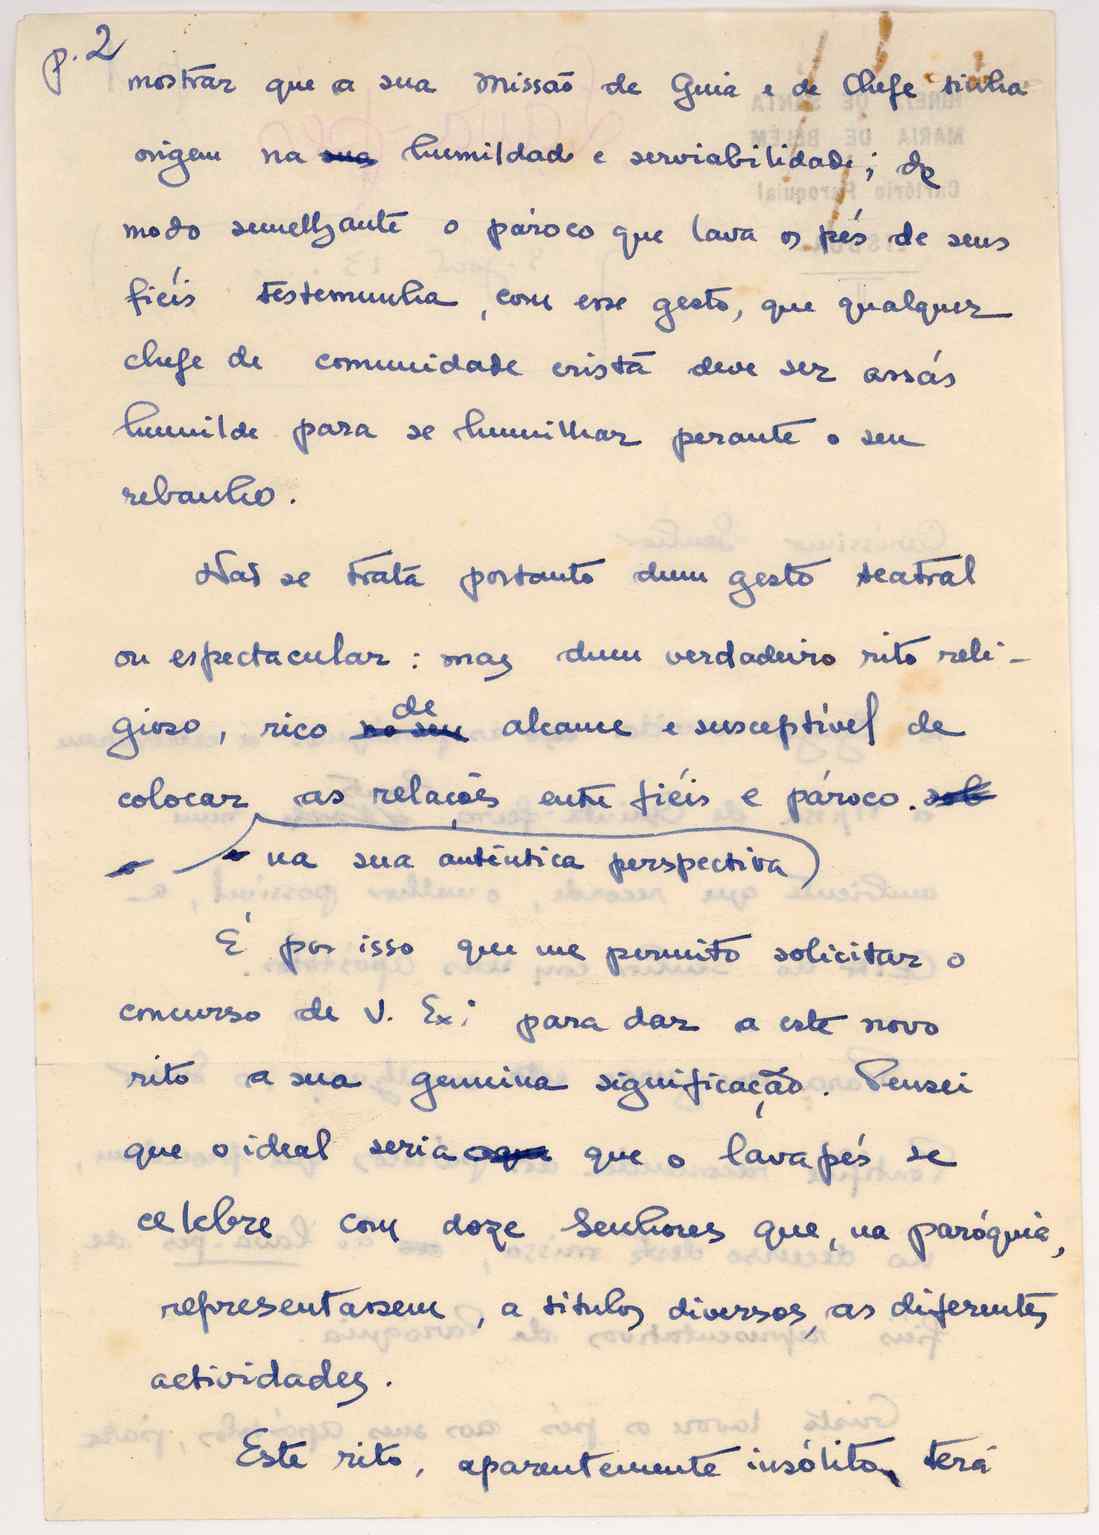 p. 2
mostrar que a sua missão de Guia e de Chefe tinha
origem na sua humildade e serviabilidade; de
modo semelhante o pároco que lava os pés de seus
fiéis testemunha, com esse gesto, que qualquer
chefe de comunidade cristã deve ser assás
humilde para se humilhar perante o seu
rebanho.
Não se trata portanto dum gesto teatral
ou espectacular: mas dum verdadeiro rito reli-
gioso, rico no seu de alcance e susceptível de
colocar as relações entre fiéis e pároco. sob
na sua autêntica perspectiva
É por isso que me permito solicitar o
concurso de V. Ex.ª para dar a este novo
rito a sua genuina significação. Pensei
que o ideal seria que que o lavapés se
celebre com doze Senhores que, na paróquia,
representassem, a titulos diversos, as diferentes
actividades.
Este rito, aparentemente insólito, terá